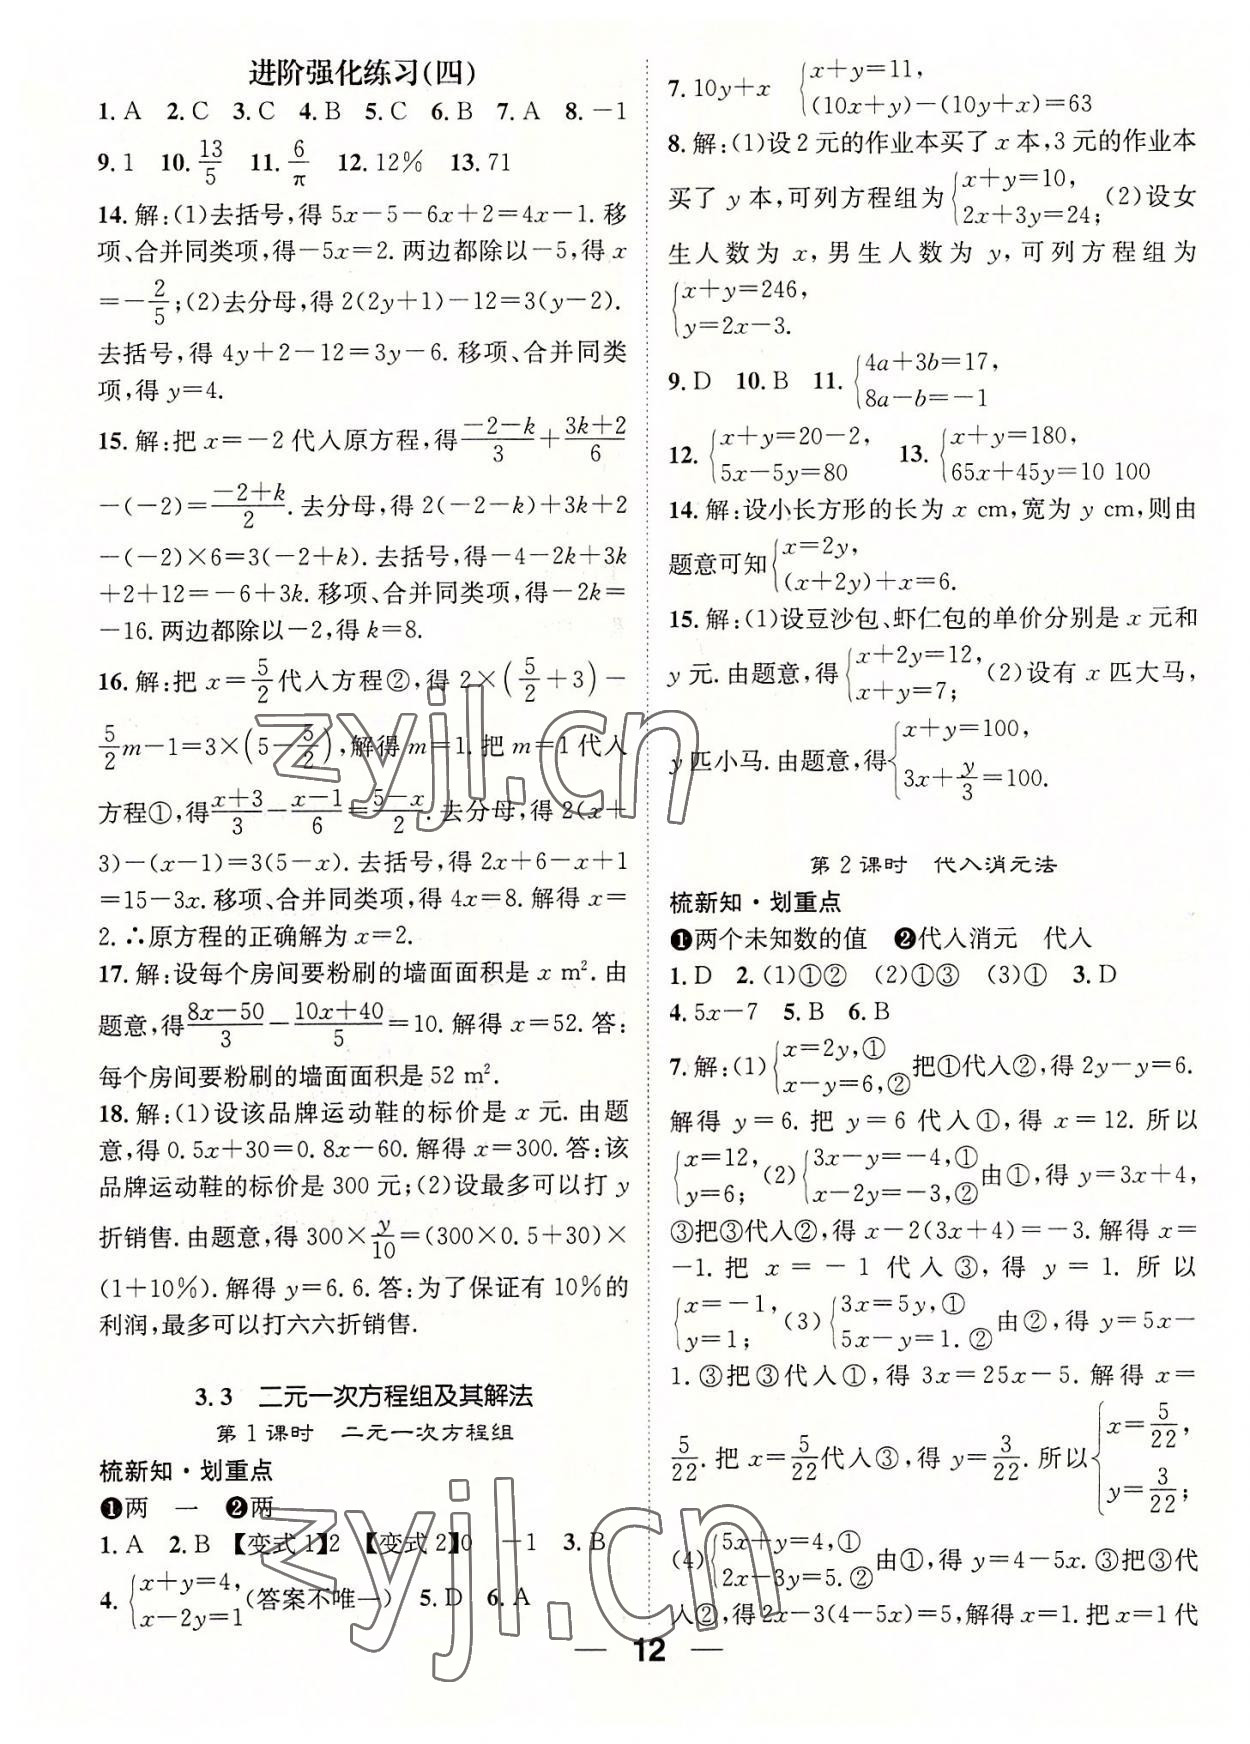 进阶强化练习(四)
1. A　2. C　3. C　4. B　5. C　6. B　7. A　8. －1
9. 1　10. 13/5　11. 6/π　12. 12%　13. 71
14. 解:(1)去括号,得 5x－5－6x＋2＝4x－1. 移
项、合并同类项,得－5x＝2. 两边都除以－5,得 x
＝－2/5;(2)去分母,得 2(2y＋1)－12＝3(y－2).
去括号,得 4y＋2－12＝3y－6. 移项、合并同类
项,得 y＝4.
15. 解:把 x＝－2 代入原方程,得(－2－k)/3＋(3k＋2)/6
－(－2)＝(－2＋k)/2. 去分母,得 2(－2－k)＋3k＋2
－(－2)×6＝3(－2＋k). 去括号,得－4－2k＋3k
＋2＋12＝－6＋3k. 移项、合并同类项,得－2k＝
－16. 两边都除以－2,得 k＝8.
16. 解:把 x＝5/2代入方程②,得 2×(5/2＋3)－
5/2m－1＝3×(5－5/2),解得 m＝1. 把 m＝1 代入
方程①,得(x＋3)/3－(x－1)/6＝(5－x)/2. 去分母,得 2(x＋
3)－(x－1)＝3(5－x). 去括号,得 2x＋6－x＋1
＝15－3x. 移项、合并同类项,得 4x＝8. 解得 x＝
2. ∴原方程的正确解为 x＝2.
17. 解:设每个房间要粉刷的墙面面积是 x m². 由
题意,得(8x－50)/3－(10x＋40)/5＝10. 解得 x＝52. 答:
每个房间要粉刷的墙面面积是 52 m².
18. 解:(1)设该品牌运动鞋的标价是 x 元. 由题
意,得 0. 5x＋30＝0. 8x－60. 解得 x＝300. 答:该
品牌运动鞋的标价是 300 元;(2)设最多可以打 y
折销售. 由题意,得 300×y/10＝(300×0. 5＋30)×
(1＋10%). 解得 y＝6. 6. 答:为了保证有 10%的
利润,最多可以打六六折销售.
3. 3　二元一次方程组及其解法
第 1 课时　二元一次方程组
梳新知·划重点
❶两　一　❷两
1. A　2. B　【变式 1】2　【变式 2】0　－1　3. B
4. {x＋y＝4, x－2y＝1(答案不唯一)　5. D　6. A
7. 10y＋x　{x＋y＝11, (10x＋y)－(10y＋x)＝63
8. 解:(1)设 2 元的作业本买了 x 本,3 元的作业本
买了 y 本,可列方程组为{x＋y＝10, 2x＋3y＝24;(2)设女
生人数为 x,男生人数为 y,可列方程组为
{x＋y＝246, y＝2x－3.
9. D　10. B　11. {4a＋3b＝17, 8a－b＝－1
12. {x＋y＝20－2, 5x－5y＝80　13. {x＋y＝180, 65x＋45y＝10 100
14. 解:设小长方形的长为 x cm,宽为 y cm,则由
题意可知{x＝2y, (x＋2y)＋x＝6.
15. 解:(1)设豆沙包、虾仁包的单价分别是 x 元和
y 元. 由题意,得{x＋2y＝12, x＋y＝7;(2)设有 x 匹大马,
y 匹小马. 由题意,得{x＋y＝100, 3x＋y/3＝100.
第 2 课时　代入消元法
梳新知·划重点
❶两个未知数的值　❷代入消元　代入
1. D　2. (1)①②　(2)①③　(3)①　3. D
4. 5x－7　5. B　6. B
7. 解:(1){x＝2y,① x－y＝6,②把①代入②,得 2y－y＝6.
解得 y＝6. 把 y＝6 代入①,得 x＝12. 所以
{x＝12, y＝6;(2){3x－y＝－4,① x－2y＝－3,②由①,得 y＝3x＋4,
③把③代入②,得 x－2(3x＋4)＝－3. 解得 x＝
－1. 把 x＝－1 代入③,得 y＝1. 所以
{x＝－1, y＝1;(3){3x＝5y,① 5x－y＝1. ②由②,得 y＝5x－
1. ③把③代入①,得 3x＝25x－5. 解得 x＝
5/22. 把 x＝5/22代入③,得 y＝3/22. 所以{x＝5/22, y＝3/22;
(4){5x＋y＝4,① 2x－3y＝5. ②由①,得 y＝4－5x. ③把③代
入②,得 2x－3(4－5x)＝5,解得 x＝1. 把 x＝1 代
— 12 —
zyjl.cn
zyjl.cn